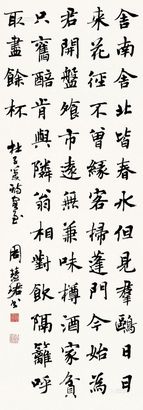 舍南舍北皆春水但見羣鷗日日
來花徑不曾緣客掃蓬門今始為
君開盤飧市遠無兼味樽酒家貧
只舊醅肯與隣翁相對飲隔籬呼
取盡餘杯
杜子美詩客至 周慧珺書